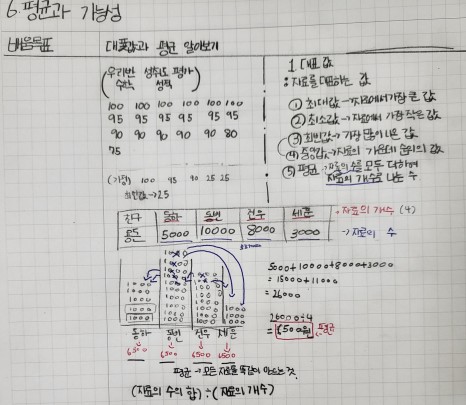 6. 평균과 가능성
배움목표
대푯값과 평균 알아보기
(우리반 성취도 평가)
수학 성적
100 100 100 100 100 100
95 95 95 95 95 95
90 90 90 90 90 80
75
(가정) 100 95 90 25 25
최빈값→25
1. 대표값
: 자료를 대표하는 값
① 최대값→자료에서 가장 큰 값
② 최소값→자료에서 가장 작은 값
③ 최빈값→가장 많이 나온 값
④ 중앙값→자료의 가운데 순위의 값
⑤ 평균→자료의 수를 모두 더하여
자료의 개수로 나눈 수
친구 동하 동빈 건우 세훈
용돈 5000 10000 8000 3000
→자료의 개수 (4)
→자료의 수
1000 1000 1000 1000
1000 1000 1000 1000
1000 1000 1000 1000
1000 1000 1000
1000 1000 1000
동하 동빈 건우 세훈
6500 6500 6500 6500
5000+10000+8000+3000
=15000+11000
=26000
26000÷4
=6500원 평균
평균→모든 자료를 똑같이 만드는 것.
(자료의 수의 합)÷(자료의 개수)